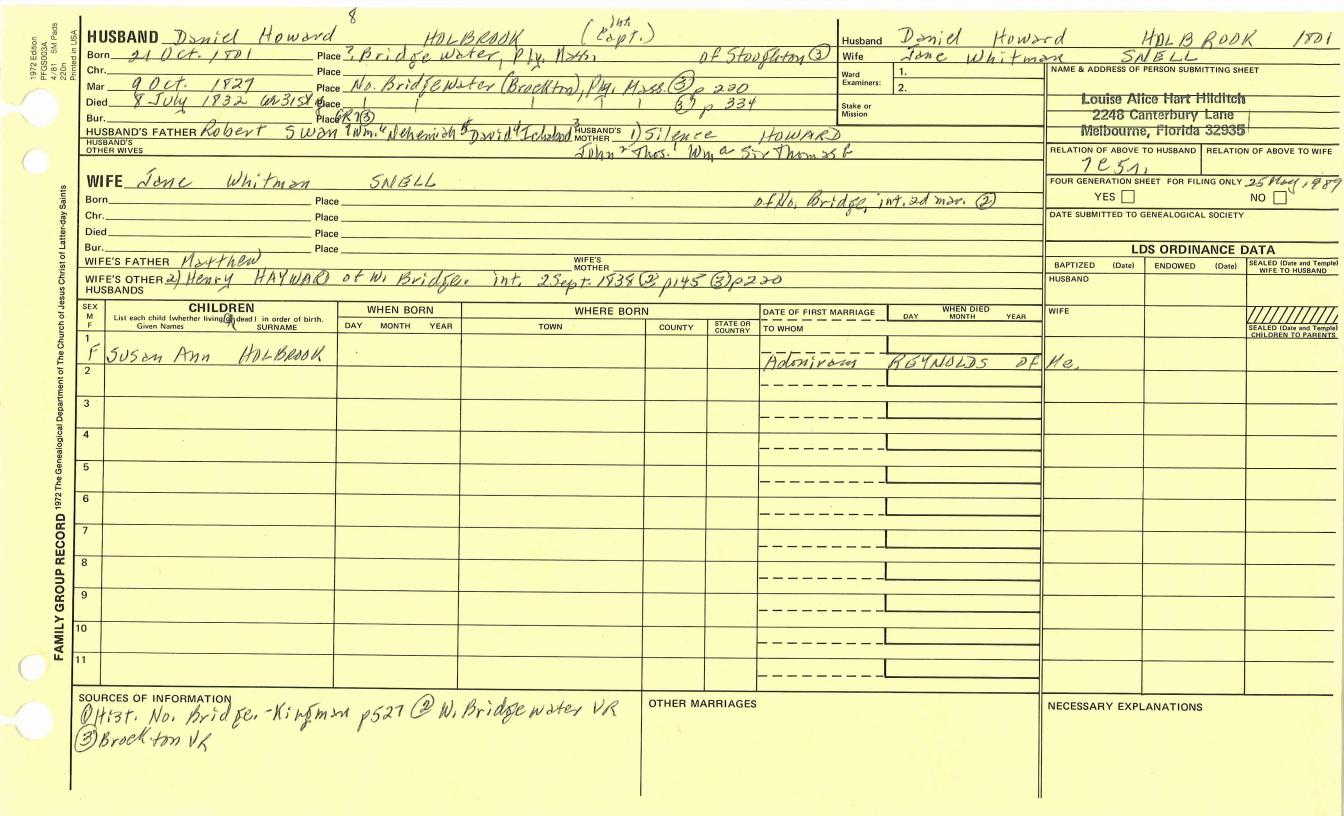 8
HUSBAND Daniel Howard HOLBROOK (Capt.)
Born 21 Oct. 1801 Place ? Bridge water, Ply. of Stoughton ②
Chr. Place
Mar 9 Oct. 1827 Place No. Bridgewater (Brockton), Ply. Mass. ③ p 220
Died 8 July 1832 Place ③ p 334
Bur. Place GR7③
HUSBAND'S FATHER Robert Swan 7 Wm. 6 Nehemiah 5 David 4 Ichabod 3 HUSBAND'S MOTHER 1) Silence HOWARD
HUSBAND'S OTHER WIVES John 2 Thos. 1 Wm a Sir Thomas b
WIFE Jane Whitman SNELL
Born Place of No. Bridge, int. 2d mar. ②
Chr. Place
Died Place
Bur. Place
WIFE'S FATHER Matthew WIFE'S MOTHER
WIFE'S OTHER HUSBANDS 2) Henry HAYWARD of W. Bridge. int. 2 Sept. 1838 ② p145 ③ p220
Husband Daniel Howard HOLBROOK 1801
Wife Jane Whitman SNELL
Ward Examiners: 1.
2.
Stake or Mission
NAME & ADDRESS OF PERSON SUBMITTING SHEET
Louise Alice Hart Hilditch
2248 Canterbury Lane
Melbourne, Florida 32935
RELATION OF ABOVE TO HUSBAND RELATION OF ABOVE TO WIFE
7C5r.
FOUR GENERATION SHEET FOR FILING ONLY 25 May, 1989
YES NO
DATE SUBMITTED TO GENEALOGICAL SOCIETY
LDS ORDINANCE DATA
BAPTIZED (Date) ENDOWED (Date) SEALED (Date and Temple) WIFE TO HUSBAND
HUSBAND
WIFE
SEALED (Date and Temple) CHILDREN TO PARENTS
SEX M F CHILDREN WHEN BORN WHERE BORN DATE OF FIRST MARRIAGE WHEN DIED
List each child (whether living or dead) in order of birth. DAY MONTH YEAR
Given Names SURNAME DAY MONTH YEAR TOWN COUNTY STATE OR COUNTRY TO WHOM
1
F Susan Ann HOLBROOK Adoniram REYNOLDS of Me.
2
3
4
5
6
7
8
9
10
11
SOURCES OF INFORMATION
① Hist. No. Bridge. - Kingman p527 ② W. Bridgewater VR
③ Brockton VR
OTHER MARRIAGES
NECESSARY EXPLANATIONS
FAMILY GROUP RECORD 1972 The Genealogical Department of The Church of Jesus Christ of Latter-day Saints
1972 Edition
PFGS003A
4/81 5M Pads
220n
Printed in USA